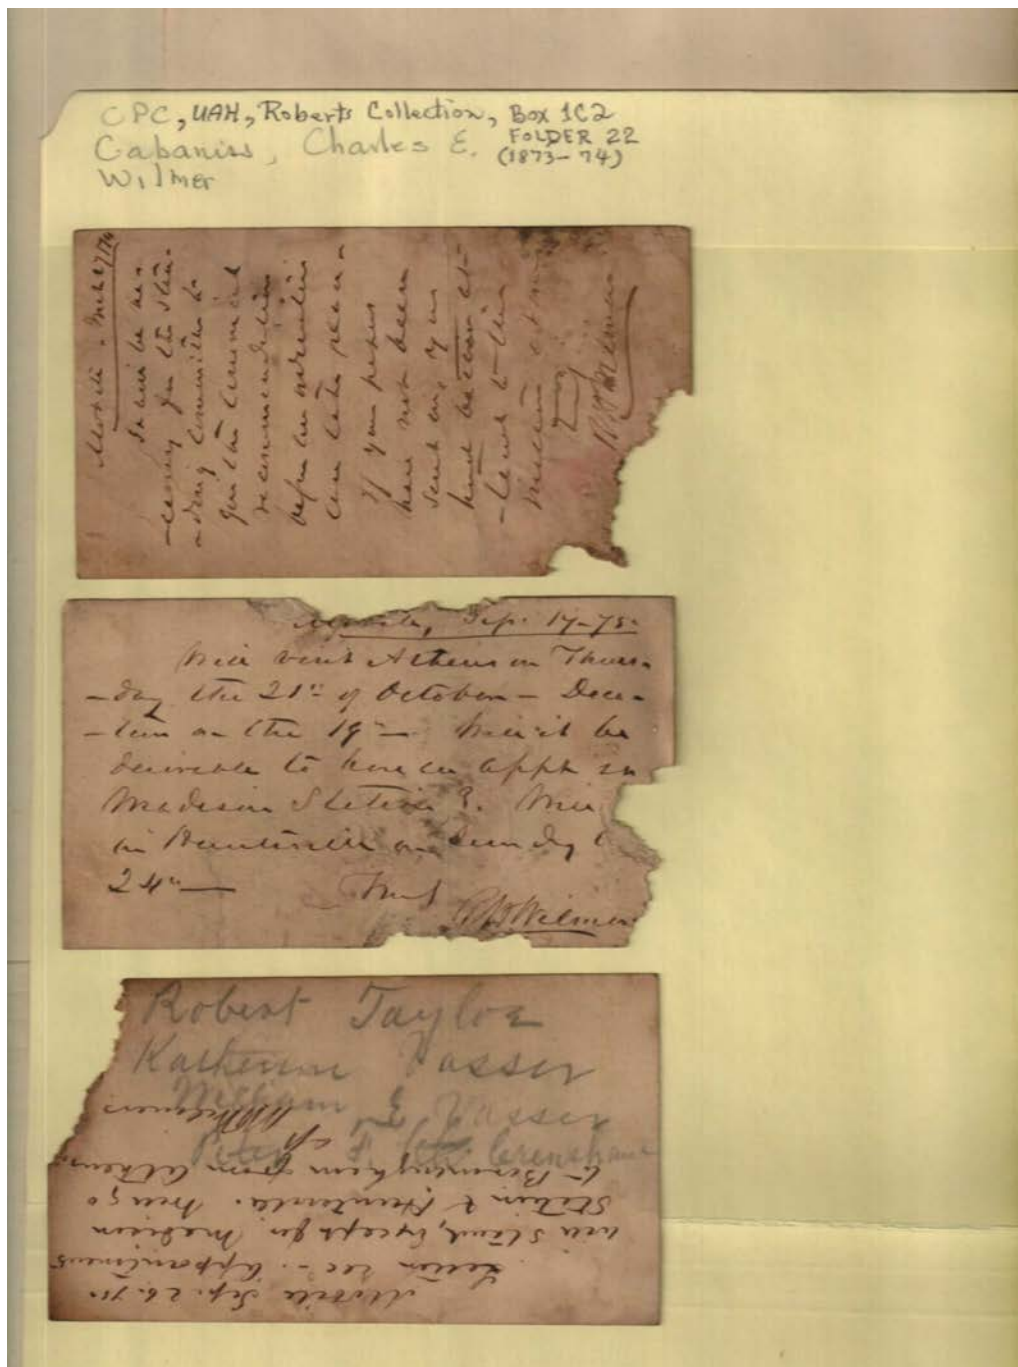 CPC, UAH, Roberts Collection, Box 1C2
FOLDER 22
Cabaniss, Charles E. (1873-74)
Wilmer
Mobile
It will be nes-
-cessary for the Stan-
-ding Committee to
give the Canonical
recommendation
before an ordination
can take place -
If your papers
have not been
sent on, you
had better at-
-tend to this
RHWilmer
Mobile, Sep. 17-75.
Will visit Athens on Thurs-
-day the 21st of October - Deca-
-tur on the 19th - Will it be
desirable to have an appt in
Madison Station? Will
in Huntsville on Sunday
24th - RHWilmer
Robert Tayloe
Katherine Vasser
William E. Vasser
Peter F. Crenshaw
Mobile Sep. 26.75.
Letter rec - Appointments
will stand, except for Madison
Station & Huntsville. Will go
to Birmingham from Athens.
RHWilmer